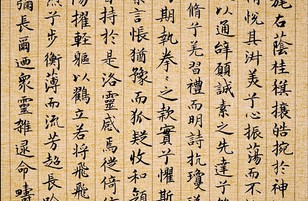 旄右蔭桂旗攘皓腕於神
情悅其淑美予心振蕩而不
以通辭願誠素之先達子
脩予羌習禮而明詩抗瓊
期執拳之款實予懼斯
言悵猶豫而狐疑收和顏
持於是洛靈感焉徙倚
揚擢輕軀以鶴立若將飛
予步蘅薄而流芳超長吟
彌長爾迺衆靈雜遝命疇